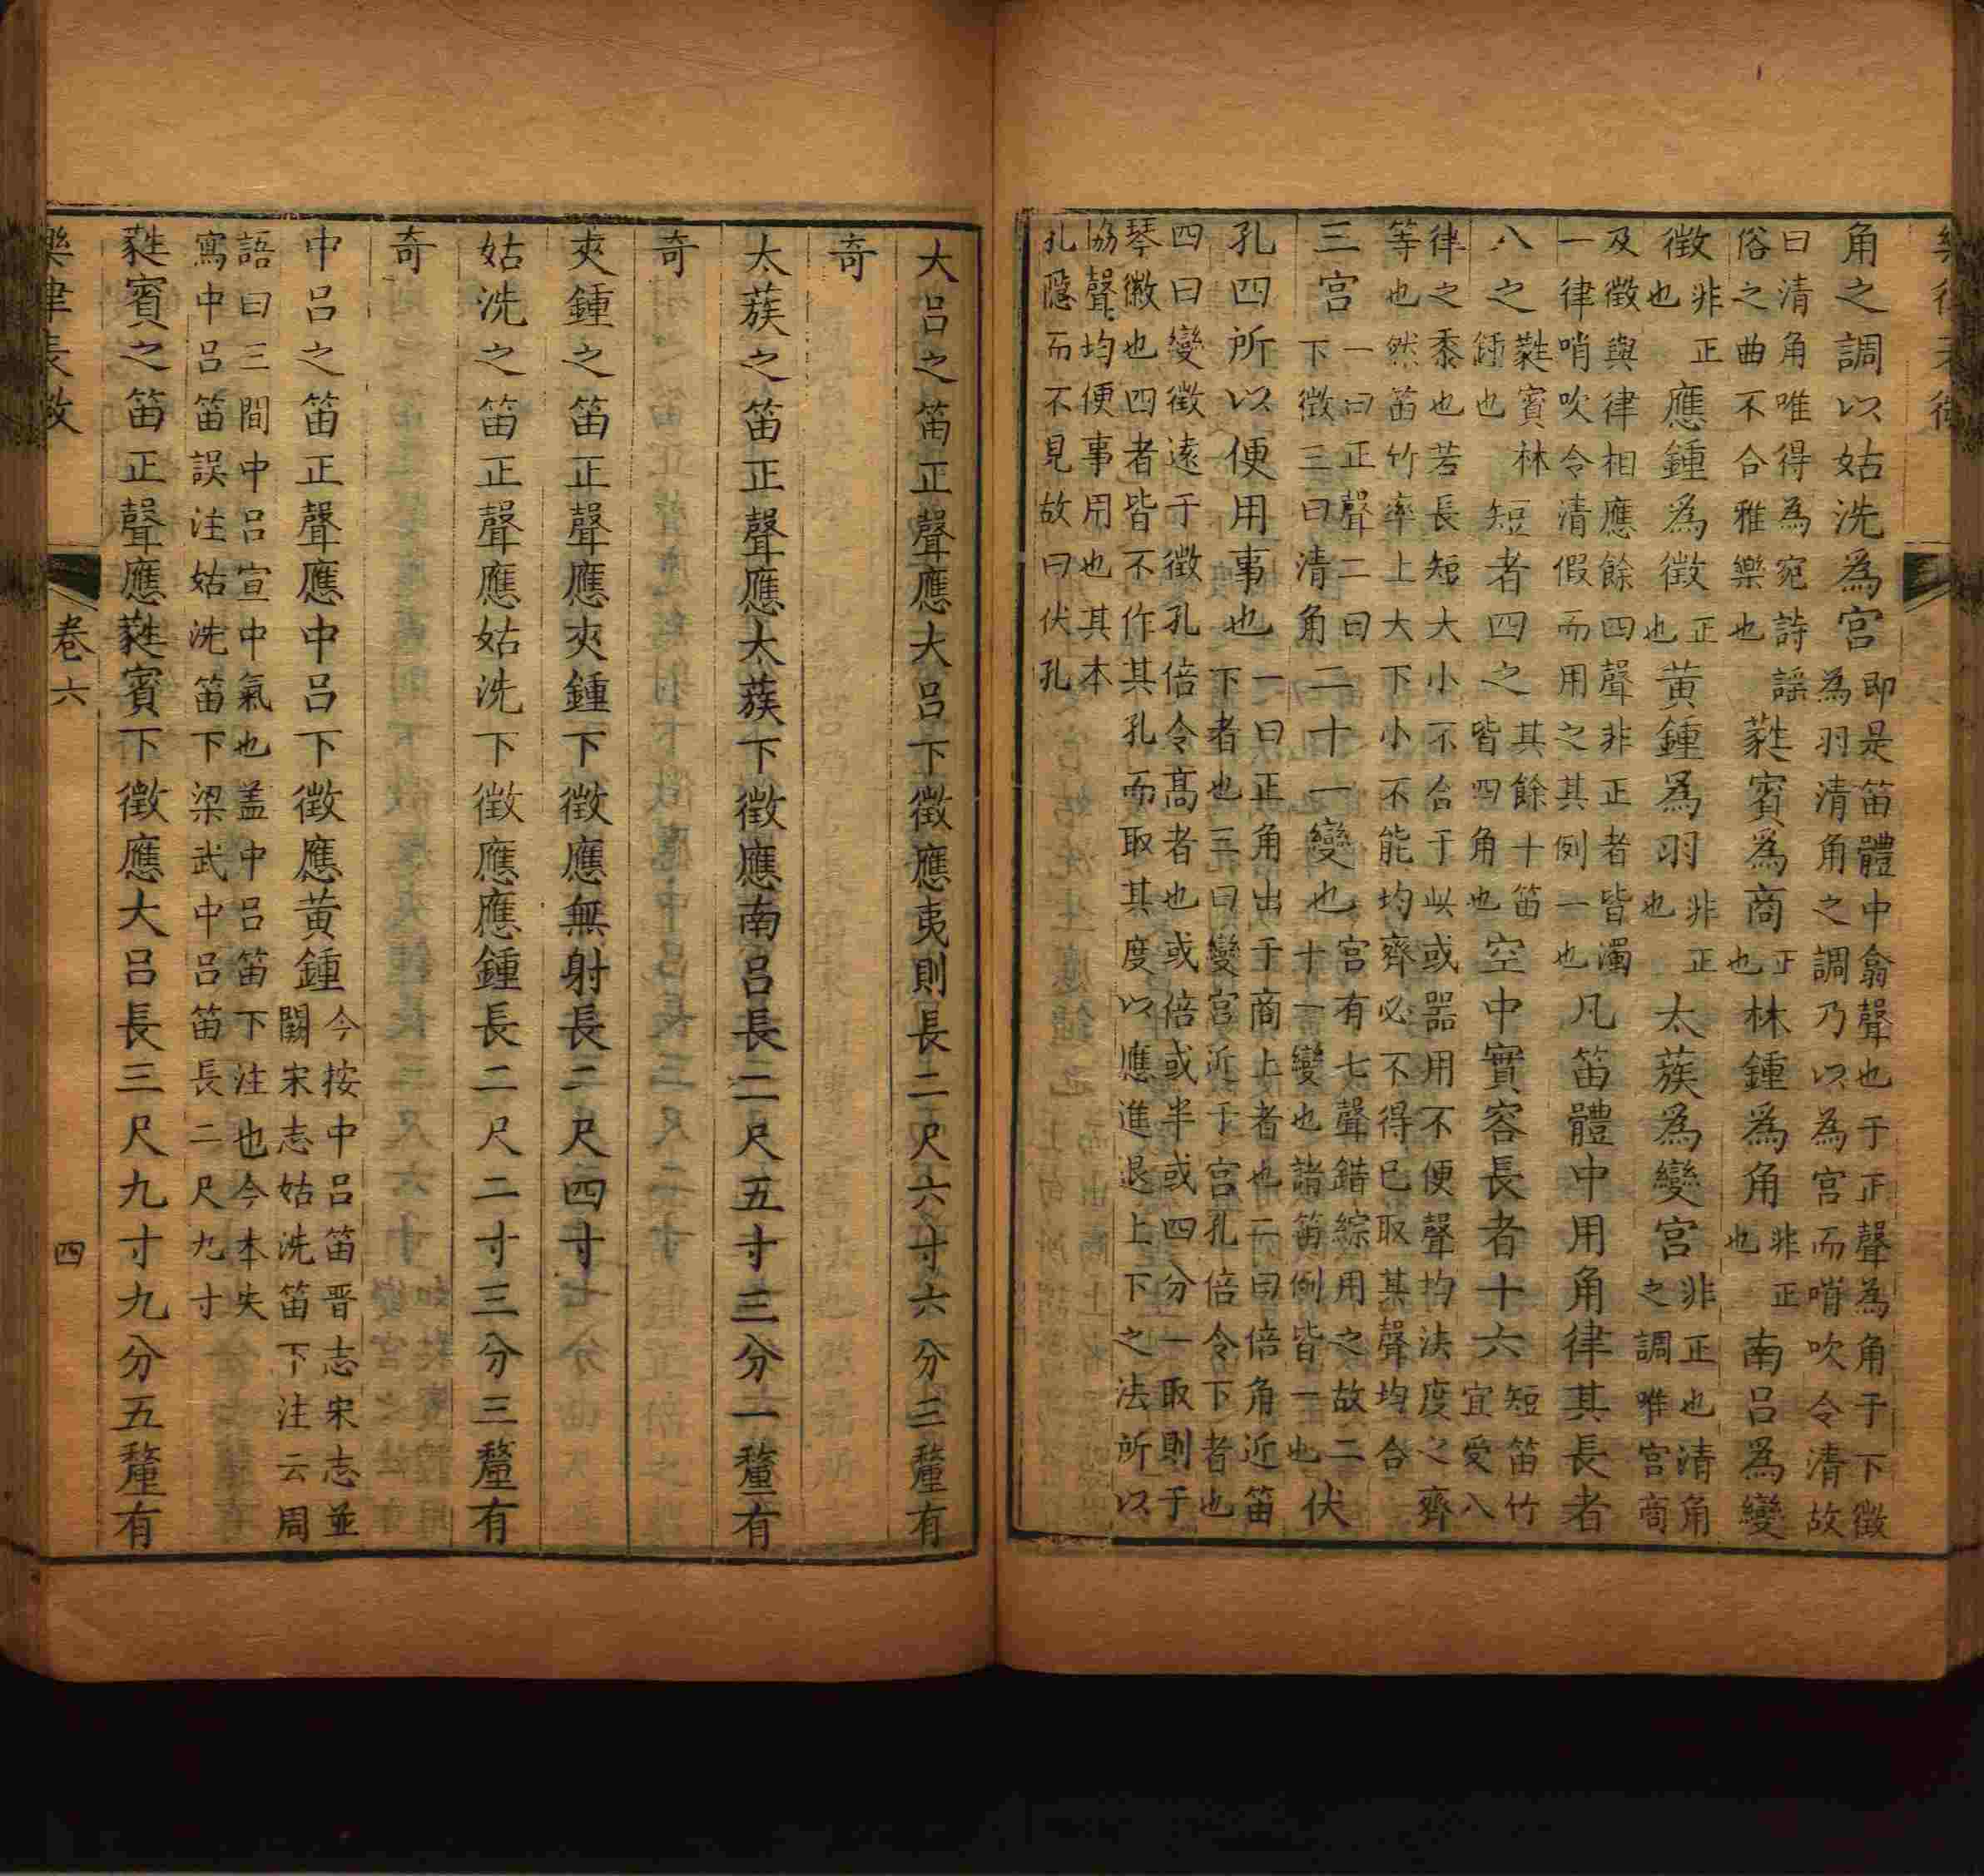 角之調以姑洗爲宮即是笛體中翕聲也于正聲為角于下徵為羽清角之調乃以為宮而哨吹令清故
曰清角唯得為宛詩謠俗之曲不合雅樂也蕤賓爲商正也林鍾爲角非正也南呂爲變
徵非正也應鍾爲徵正也黃鍾爲羽非正也太蔟爲變宮非正也清角之調唯宮商
及徵與律相應餘四聲非正者皆濁一律哨吹令清假而用之其例一也凡笛體中用角律其長者
八之蕤賓林鍾也短者四之其餘十笛皆四角也空中實容長者十六短笛竹宜受八
律之黍也若長短大小不合于此或器用不便聲均法度之齊等也然笛竹率上大下小不能均齊必不得已取其聲均合
三宮一曰正聲二曰下徵三曰清角二十一變也宮有七聲錯綜用之故二十一變也諸笛例皆一也伏
孔四所以便用事也一曰正角出于商上者也二曰倍角近笛下者也三曰變宮近于宮孔倍令下者也
四曰變徵遠于徵孔倍令高者也或倍或半或四分一取則于琴徽也四者皆不作其孔而取其度以應進退上下之法所以
協聲均便事用也其本孔隱而不見故曰伏孔
大呂之笛正聲應大呂下徵應夷則長二尺六寸六分三釐有
奇
太蔟之笛正聲應太蔟下徵應南呂長二尺五寸三分一釐有
奇
夾鍾之笛正聲應夾鍾下徵應無射長二尺四寸
姑洗之笛正聲應姑洗下徵應應鍾長二尺二寸三分三釐有
奇
中呂之笛正聲應中呂下徵應黃鍾今按中呂笛晋志宋志並闕宋志姑洗笛下注云周
語曰三間中呂宣中氣也盖中呂笛下注也今本失寫中呂笛誤注姑洗笛下梁武中呂笛長二尺九寸
蕤賓之笛正聲應蕤賓下徵應大呂長三尺九寸九分五釐有
卷六
四